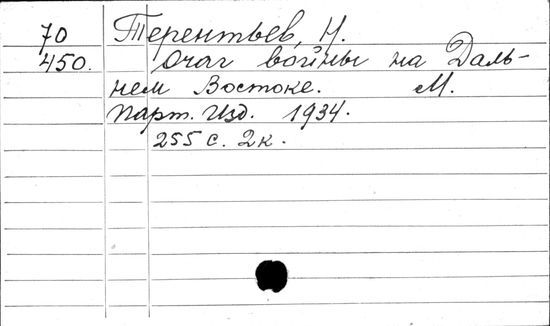 70 Терентьев, Н.
450. Очаг войны на Даль-
нем Востоке. М.
Парт. Изд. 1934.
255 с. 2к.